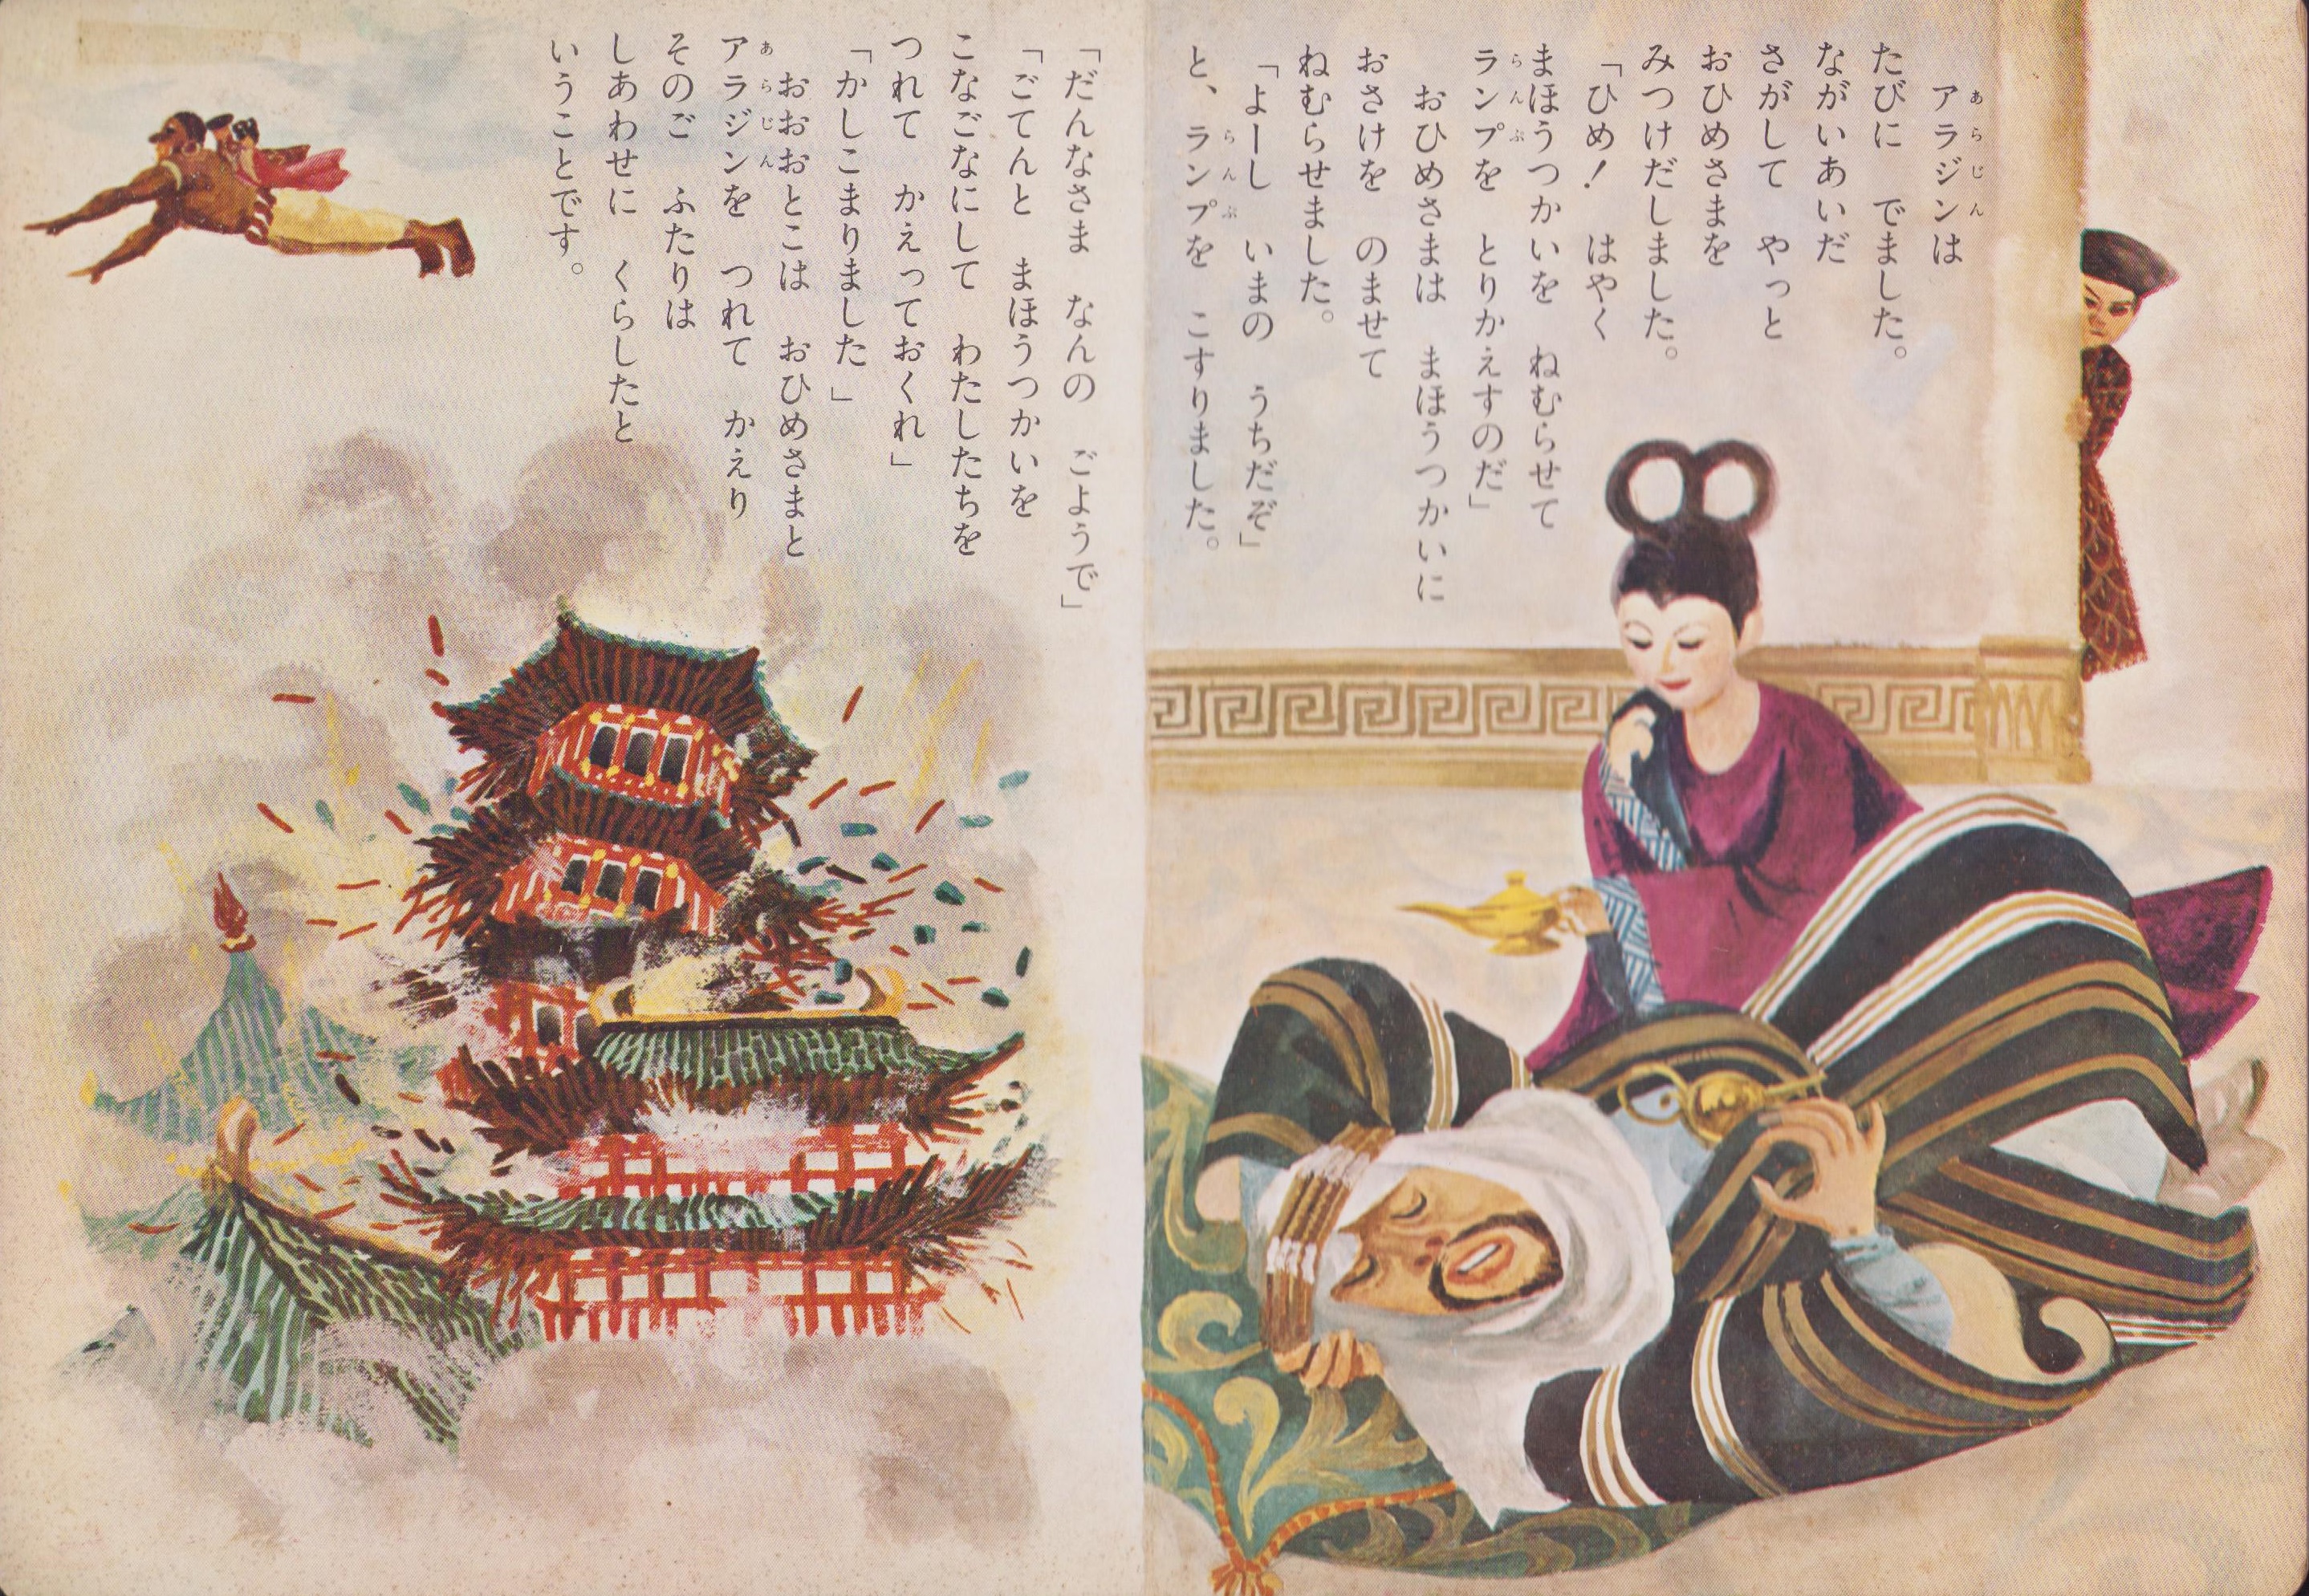 アラジンは
たびに　でました。
ながいあいだ
さがして　やっと
おひめさまを
みつけだしました。
「ひめ！　はやく
まほうつかいを　ねむらせて
ランプを　とりかえすのだ」
おひめさまは　まほうつかいに
おさけを　のませて
ねむらせました。
「よーし　いまの　うちだぞ」
と、ランプを　こすりました。
「だんなさま　なんの　ごようで」
「ごてんと　まほうつかいを
こなごなにして　わたしたちを
つれて　かえっておくれ」
「かしこまりました」
おおおとこは　おひめさまと
アラジンを　つれて　かえり
そのご　ふたりは
しあわせに　くらしたと
いうことです。